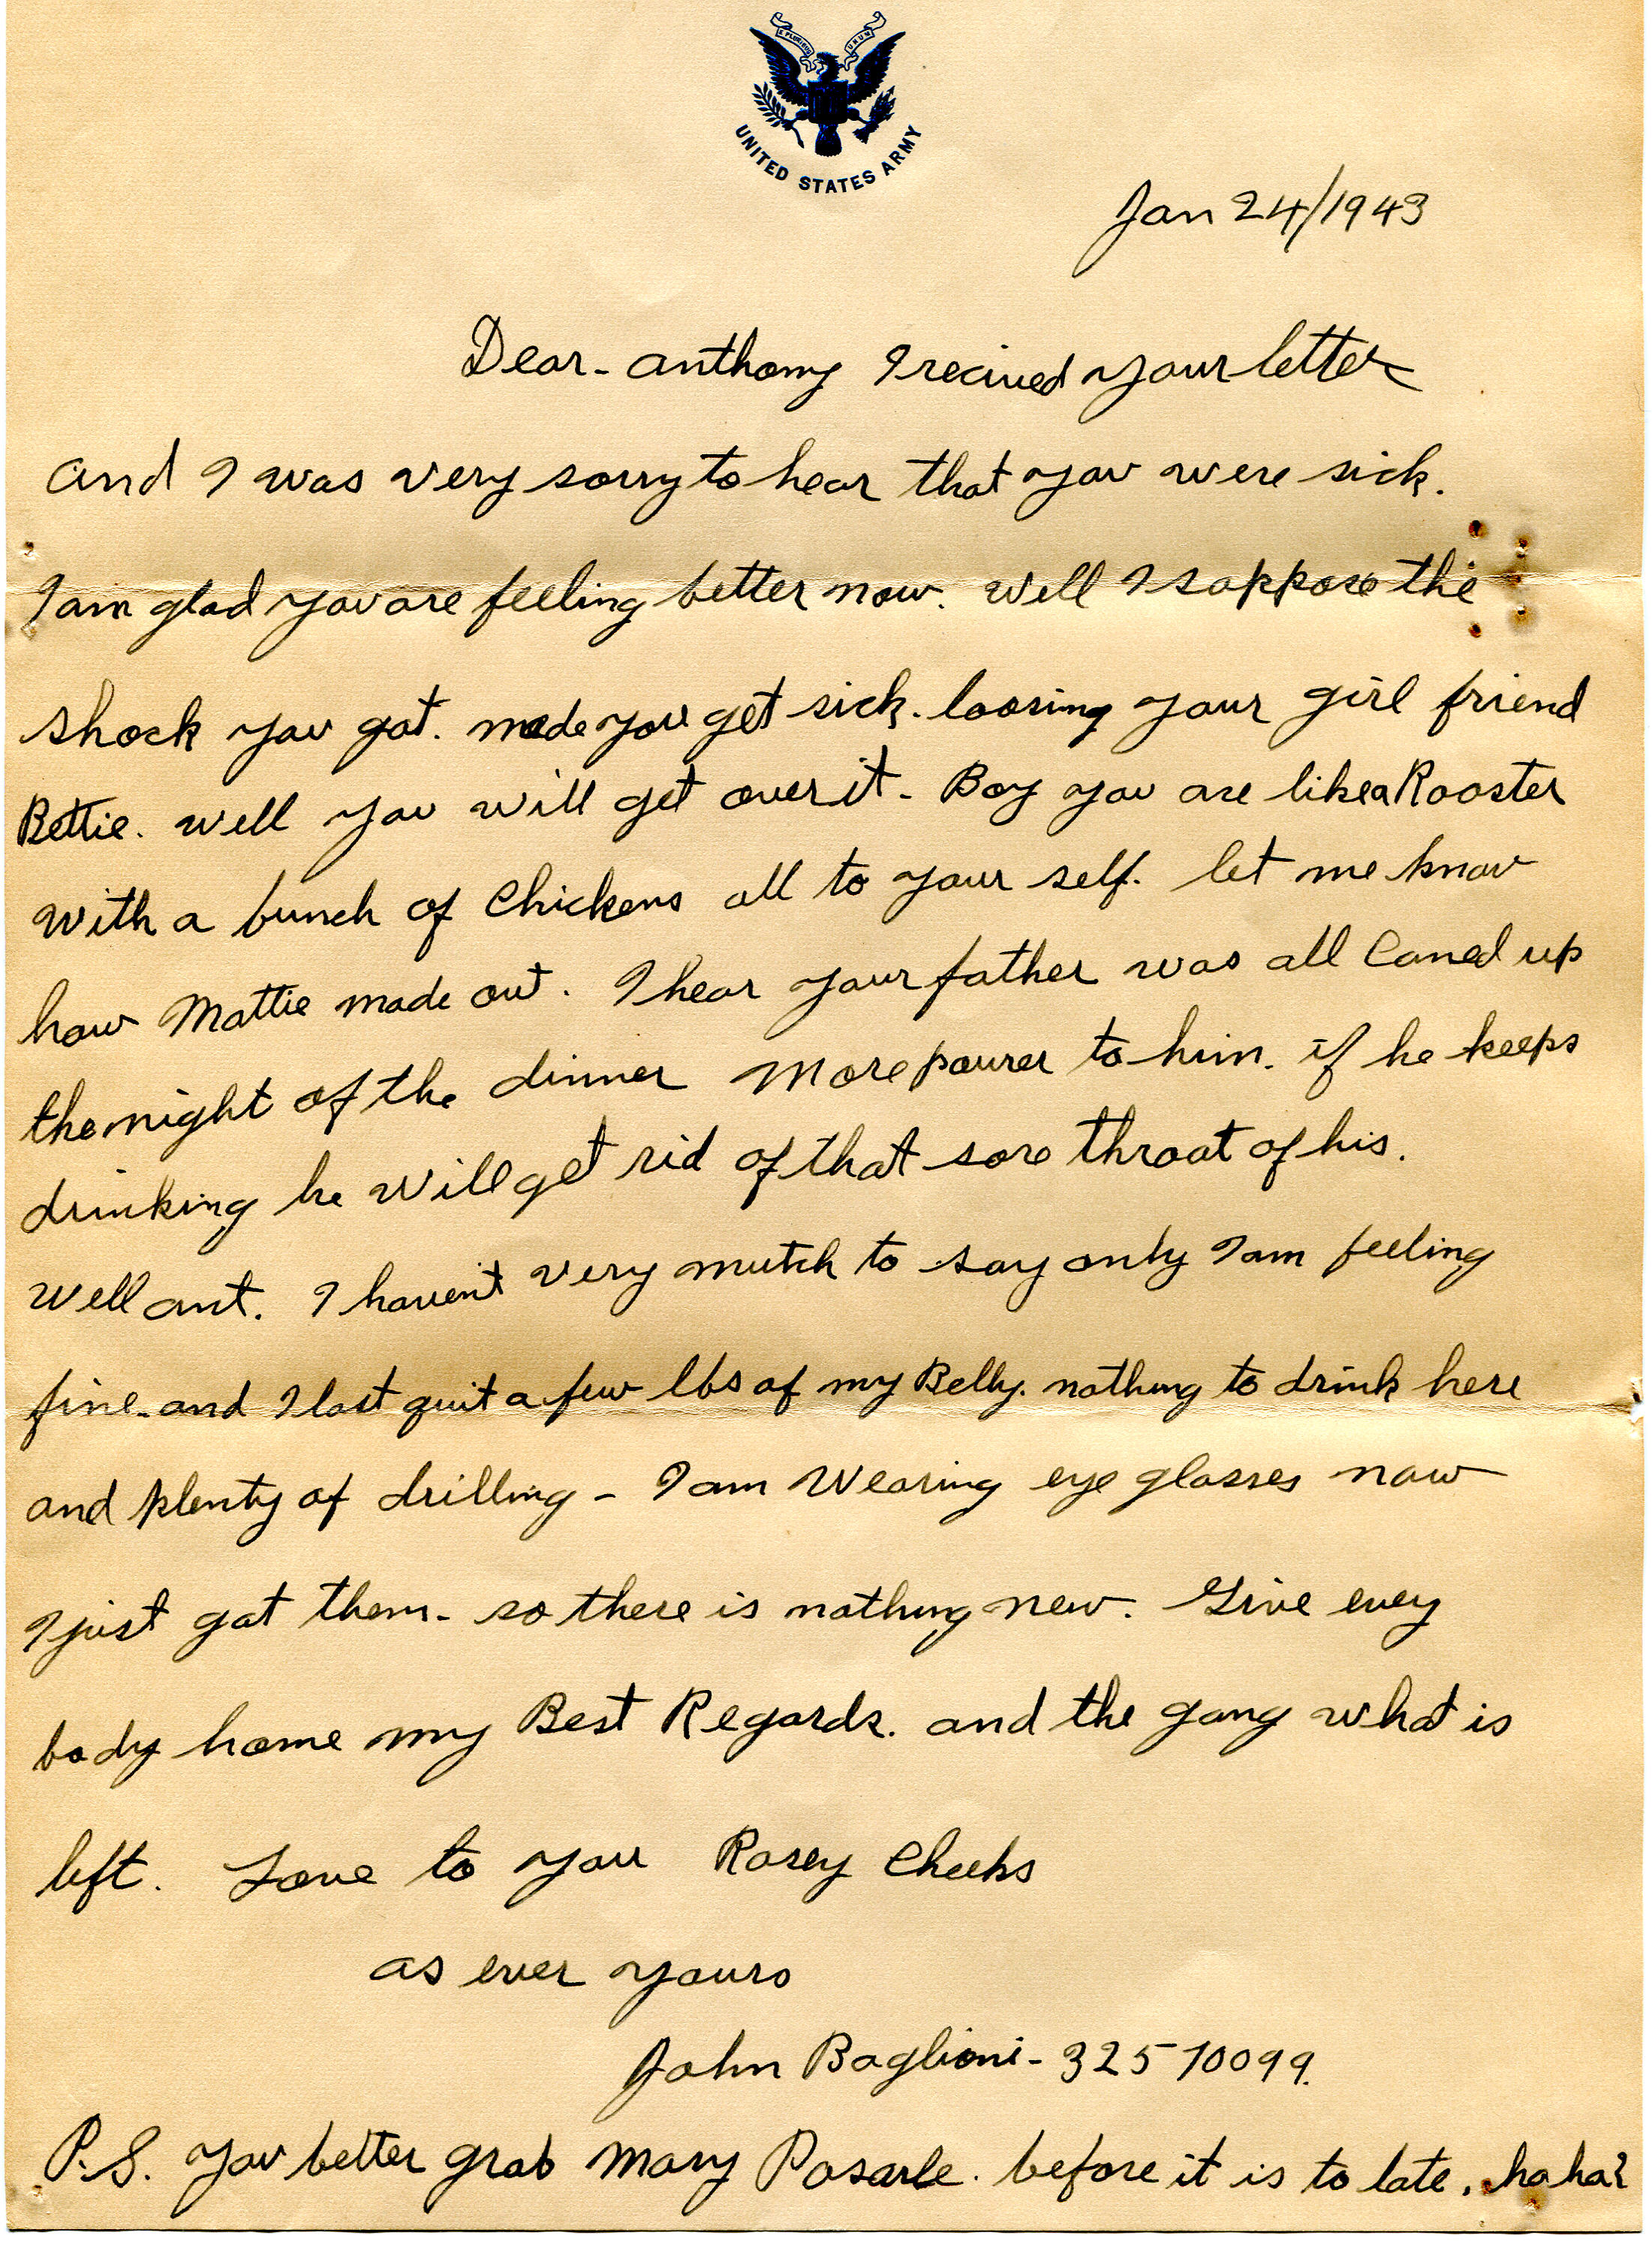 E PLURIBUS UNUM
UNITED STATES ARMY
Jan 24/1943
Dear - Anthony I recived your letter
and I was very sorry to hear that you were sick.
I am glad you are feeling better now. Well I soppose the
shock you got. made you get sick. loosing your girl friend
Bettie. well you will get over it - Boy you are like a Rooster
with a bunch of Chickens all to your self. let me know
how Mattie made out. I hear your father was all Caned up
the night of the dinner More pourer to him. if he keeps
drinking he will get rid of that sore throat of his.
Well ant. I haven't very mutch to say only I am feeling
fine - and I lost quit a few lbs of my Belly. nothing to drink here
and plenty of drilling - I am Wearing eye glasses now
I just got them - so there is nothing new. Give every
body home my Best Regards. and the gang what is
left. Love to you Rosey Cheeks
as ever yours
John Baglioni - 32570099.
P.S. You better grab Mary before it is to late. ha ha?